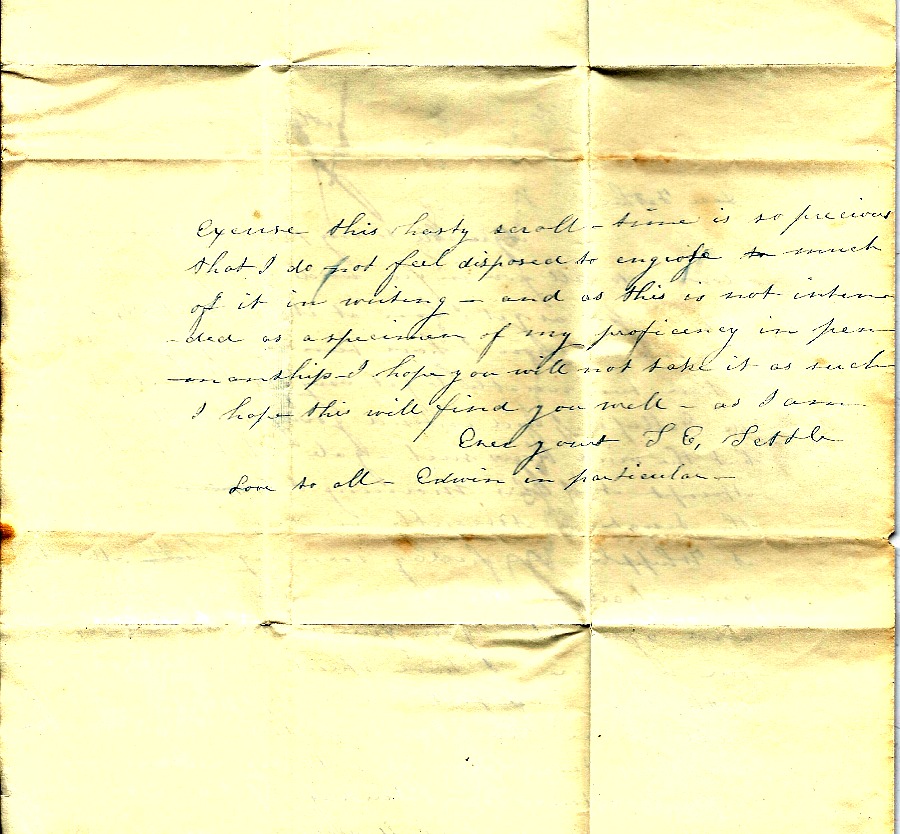 Excuse this hasty scroll - time is so precious
that I do not feel disposed to engross so much
of it in writing - and as this is not inten-
-ded as a specimen of my proficency in pen-
-manship - I hope you will not take it as such
I hope this will find you well - as I am
Ever yours S E, Settle
Love to all - Edwin in particular -